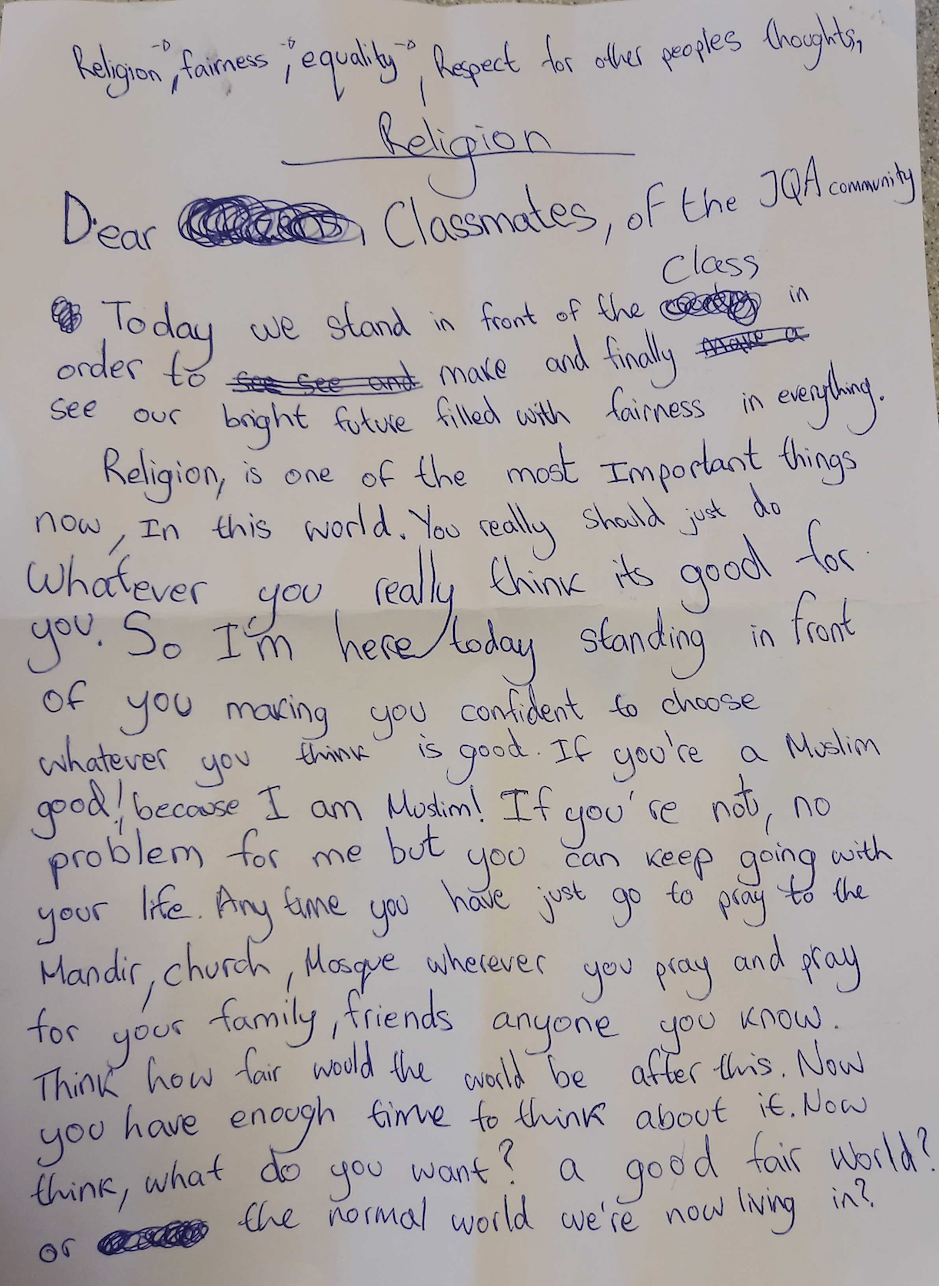 Religion, fairness, equality, Respect for other peoples thoughts,
Religion
Dear Classmates, of the JQA community
Class
Today we stand in front of the in
order to see see and make and finally make a
see our bright future filled with fairness in everything.
Religion, is one of the most Important things
now, In this world. You really should just do
whatever you really think its good for
you. So I'm here today standing in front
of you making you confident to choose
whatever you think is good. If you're a Muslim
good! because I am Muslim! If you're not, no
problem for me but you can keep going with
your life. Any time you have just go to pray to the
Mandir, church, Mosque wherever you pray and pray
for your family, friends anyone you know.
Think how fair would the world be after this. Now
you have enough time to think about it. Now
think, what do you want? a good fair world?
or the normal world we're now living in?